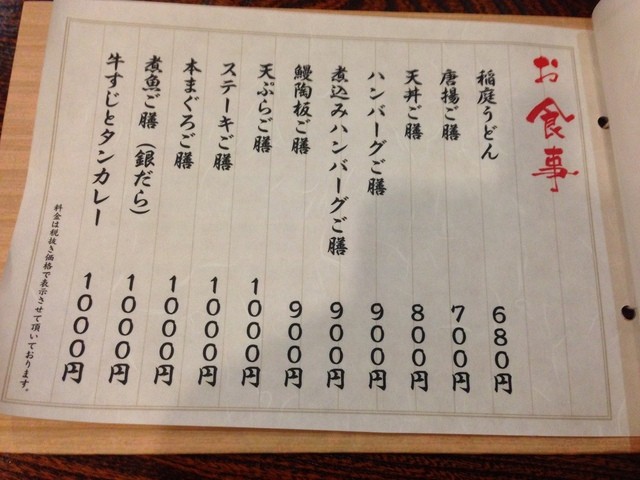 お食事
稲庭うどん 680円
唐揚ご膳 700円
天丼ご膳 800円
ハンバーグご膳 900円
煮込みハンバーグご膳 900円
鰻陶板ご膳 900円
天ぷらご膳 1000円
ステーキご膳 1000円
本まぐろご膳 1000円
煮魚ご膳(銀だら) 1000円
牛すじとタンカレー 1000円
料金は税抜き価格で表示させて頂いております。